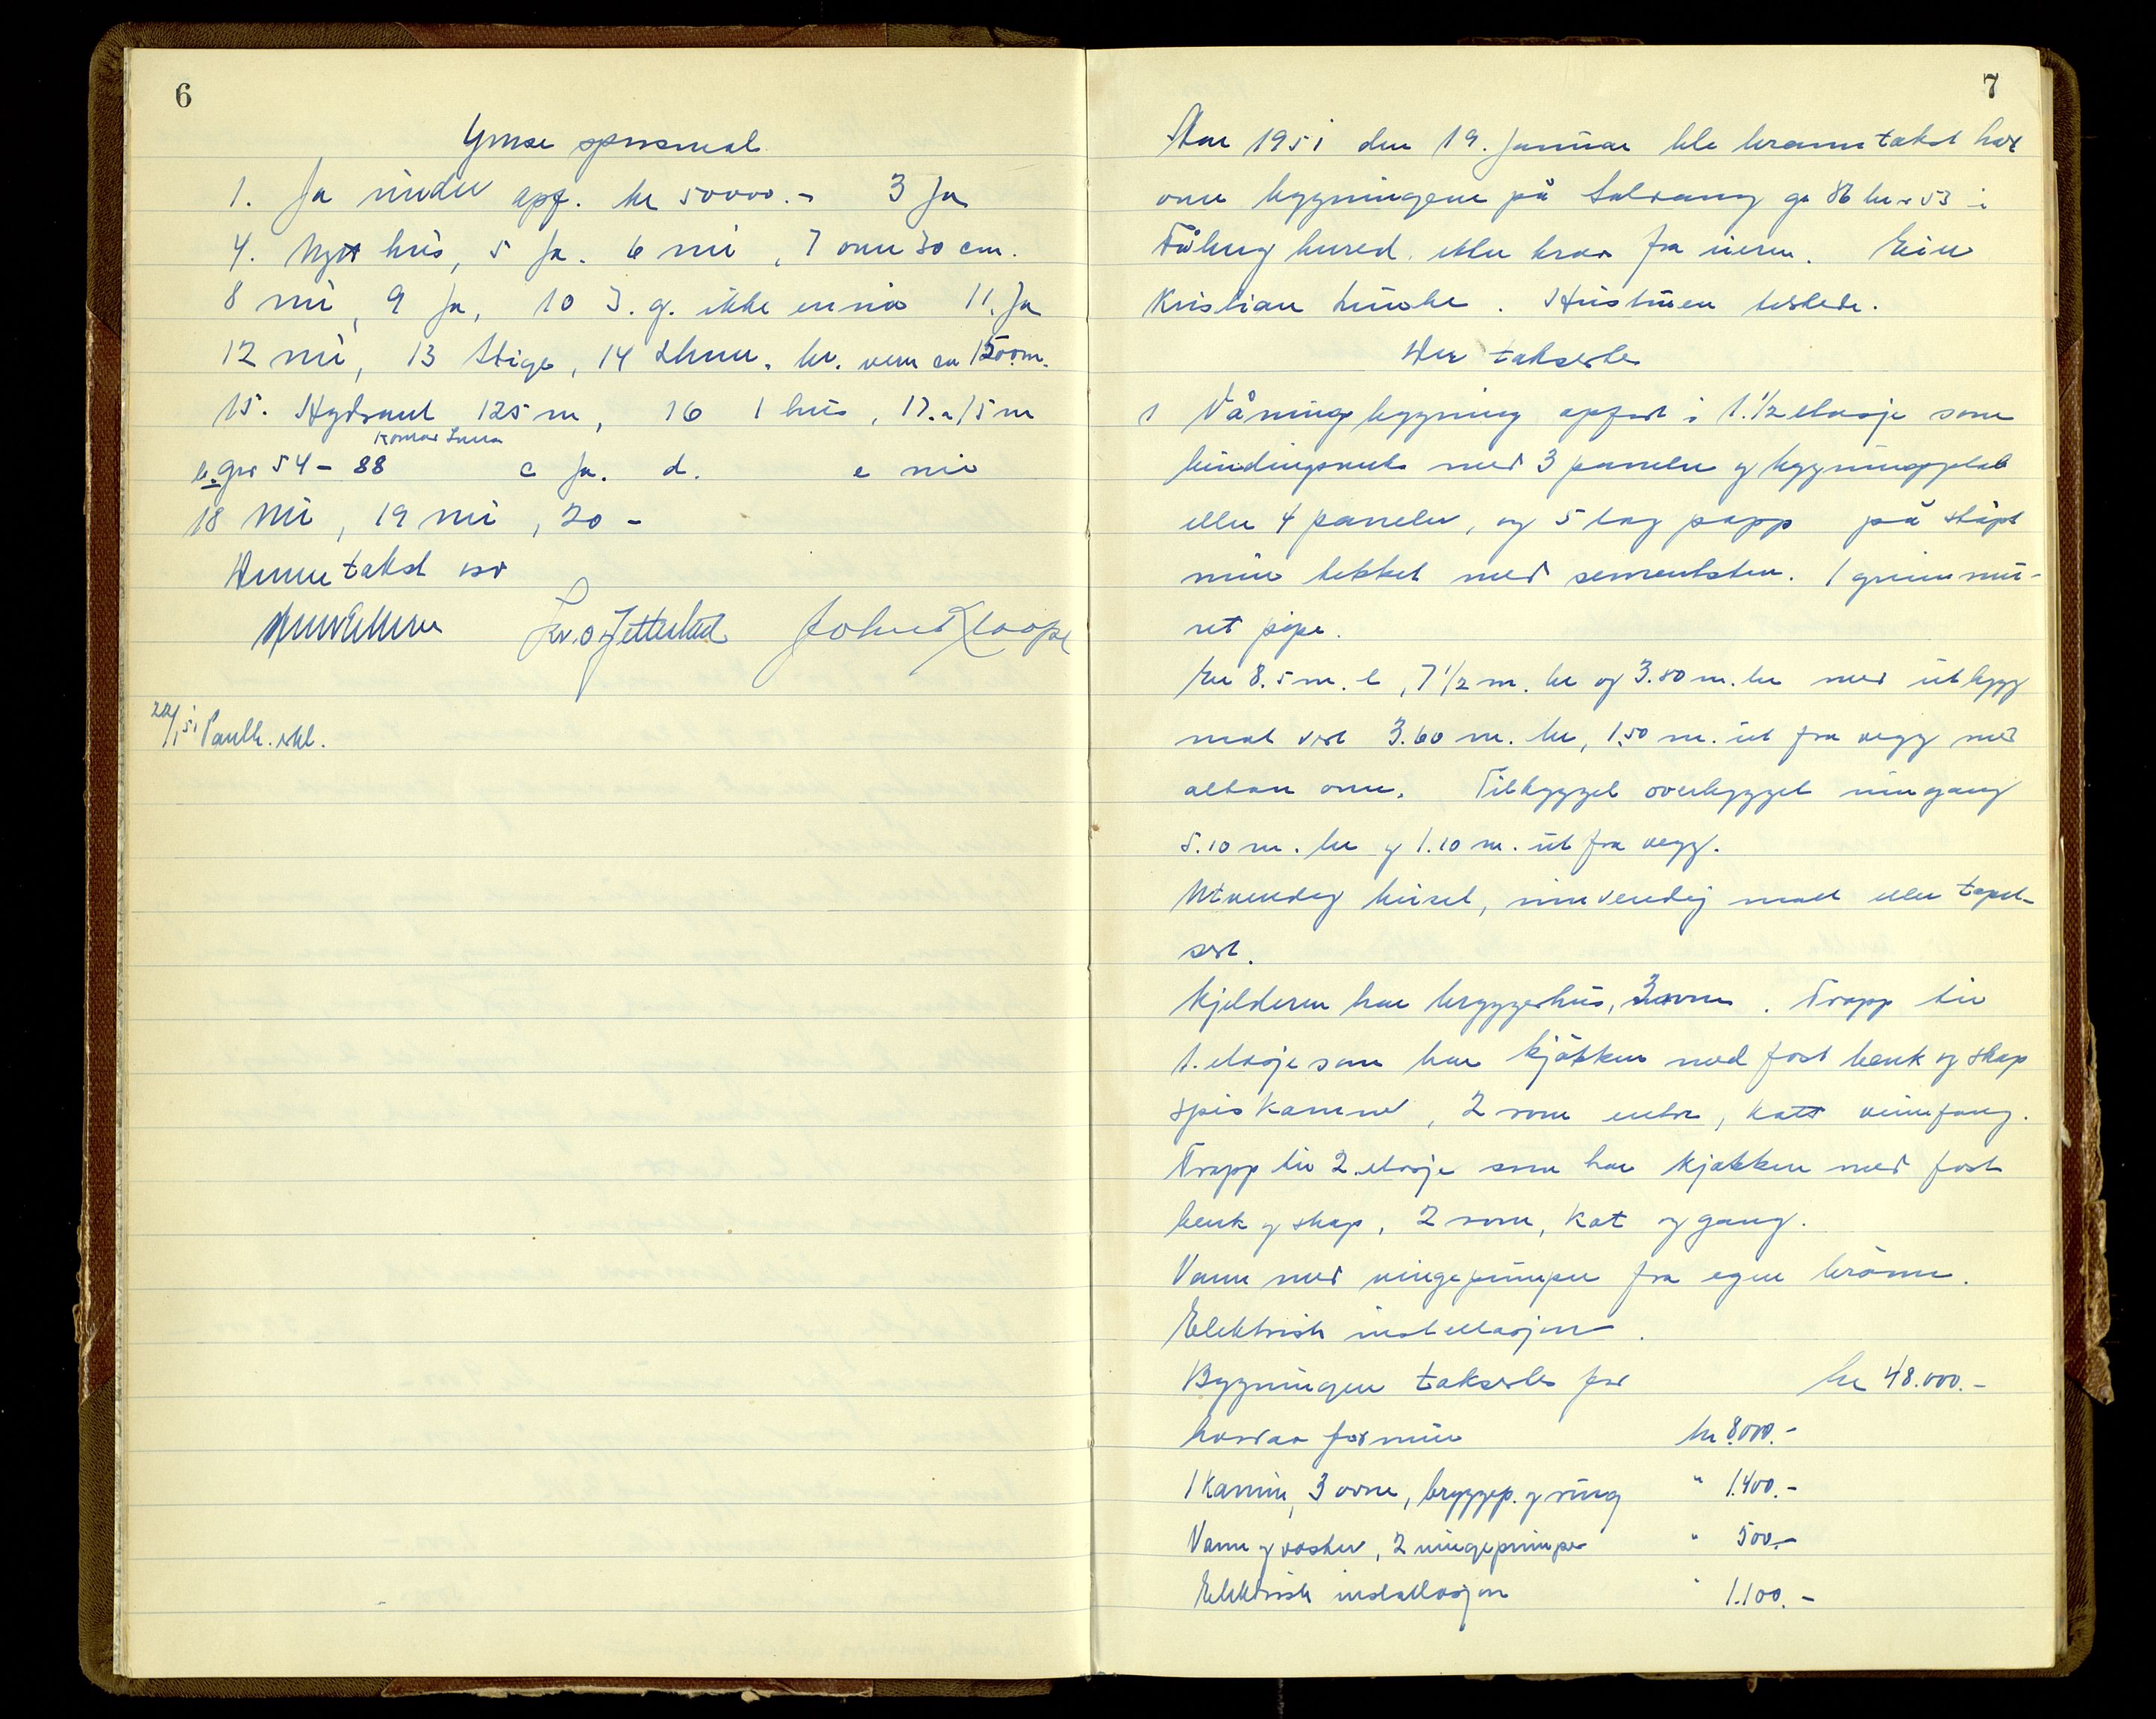 6
Ymse spørsmål.
1. Ja under oppf. kr 50000.- 3 Ja
4. Nytt hus, 5 Ja. 6 nei, 7 over 30 cm.
8 nei, 9 Ja, 10 I. g. ikke ennå 11. Ja
12 nei, 13 Stige, 14 Lhmr. br. vern ca 1500 m.
15. Hydrant 125 m, 16 1 hus, 17. a 15 m
b. gnr 54 - 88 c Ja. d. e nei
18 Nei, 19 nei, 20 -
Denne takst er
22/1 51 Panth. utkl.
7
År 1951 den 19. januar ble branntakst hol
over bygningene på Solvang gn 86 bn 53 i
Fåberg herred, etter krav fra eieren. Eier
Kristian Hustuen tilstede.
Der takserte
1 Våningsbygning oppført i 1.1/2 etasje som
bindingsverk med 3 paneler og bygningsplat
eller 4 paneler, og 5 lag papp på støpt
mur tekket med sementsten. 1 grunnmu-
ret pipe.
Er 8.5 m. l, 7 1/2 m. br og 3.80 m. hø med utbygg
mot vest 3.60 m. br, 1.50 m. ut fra vegg med
altan over. Tilbygget overbygget inngang
5.10 m. br og 1.10 m. ut fra vegg.
Utvendig beiset, innvendig malt eller tapet-
sert.
Kjelderen har bryggerhus, 3 rom. Trapp til
1. etasje som har kjøkken med fast benk og skap
spiskammer, 2 rom entre, kott vinnfang.
Trapp til 2. etasje som har kjøkken med fast
benk og skap, 2 rom, kot og gang.
Vann med vingepumper fra egen brønn.
Elektrisk installasjon.
Bygningen takseres for kr 48.000.-
hvorav for mur kr 8.000.-
1 Kamin, 3 ovner, bryggep. og ring " 1.400.-
Vann og vasker, 2 vingepumper " 500.-
Elektrisk installasjon " 1.100.-